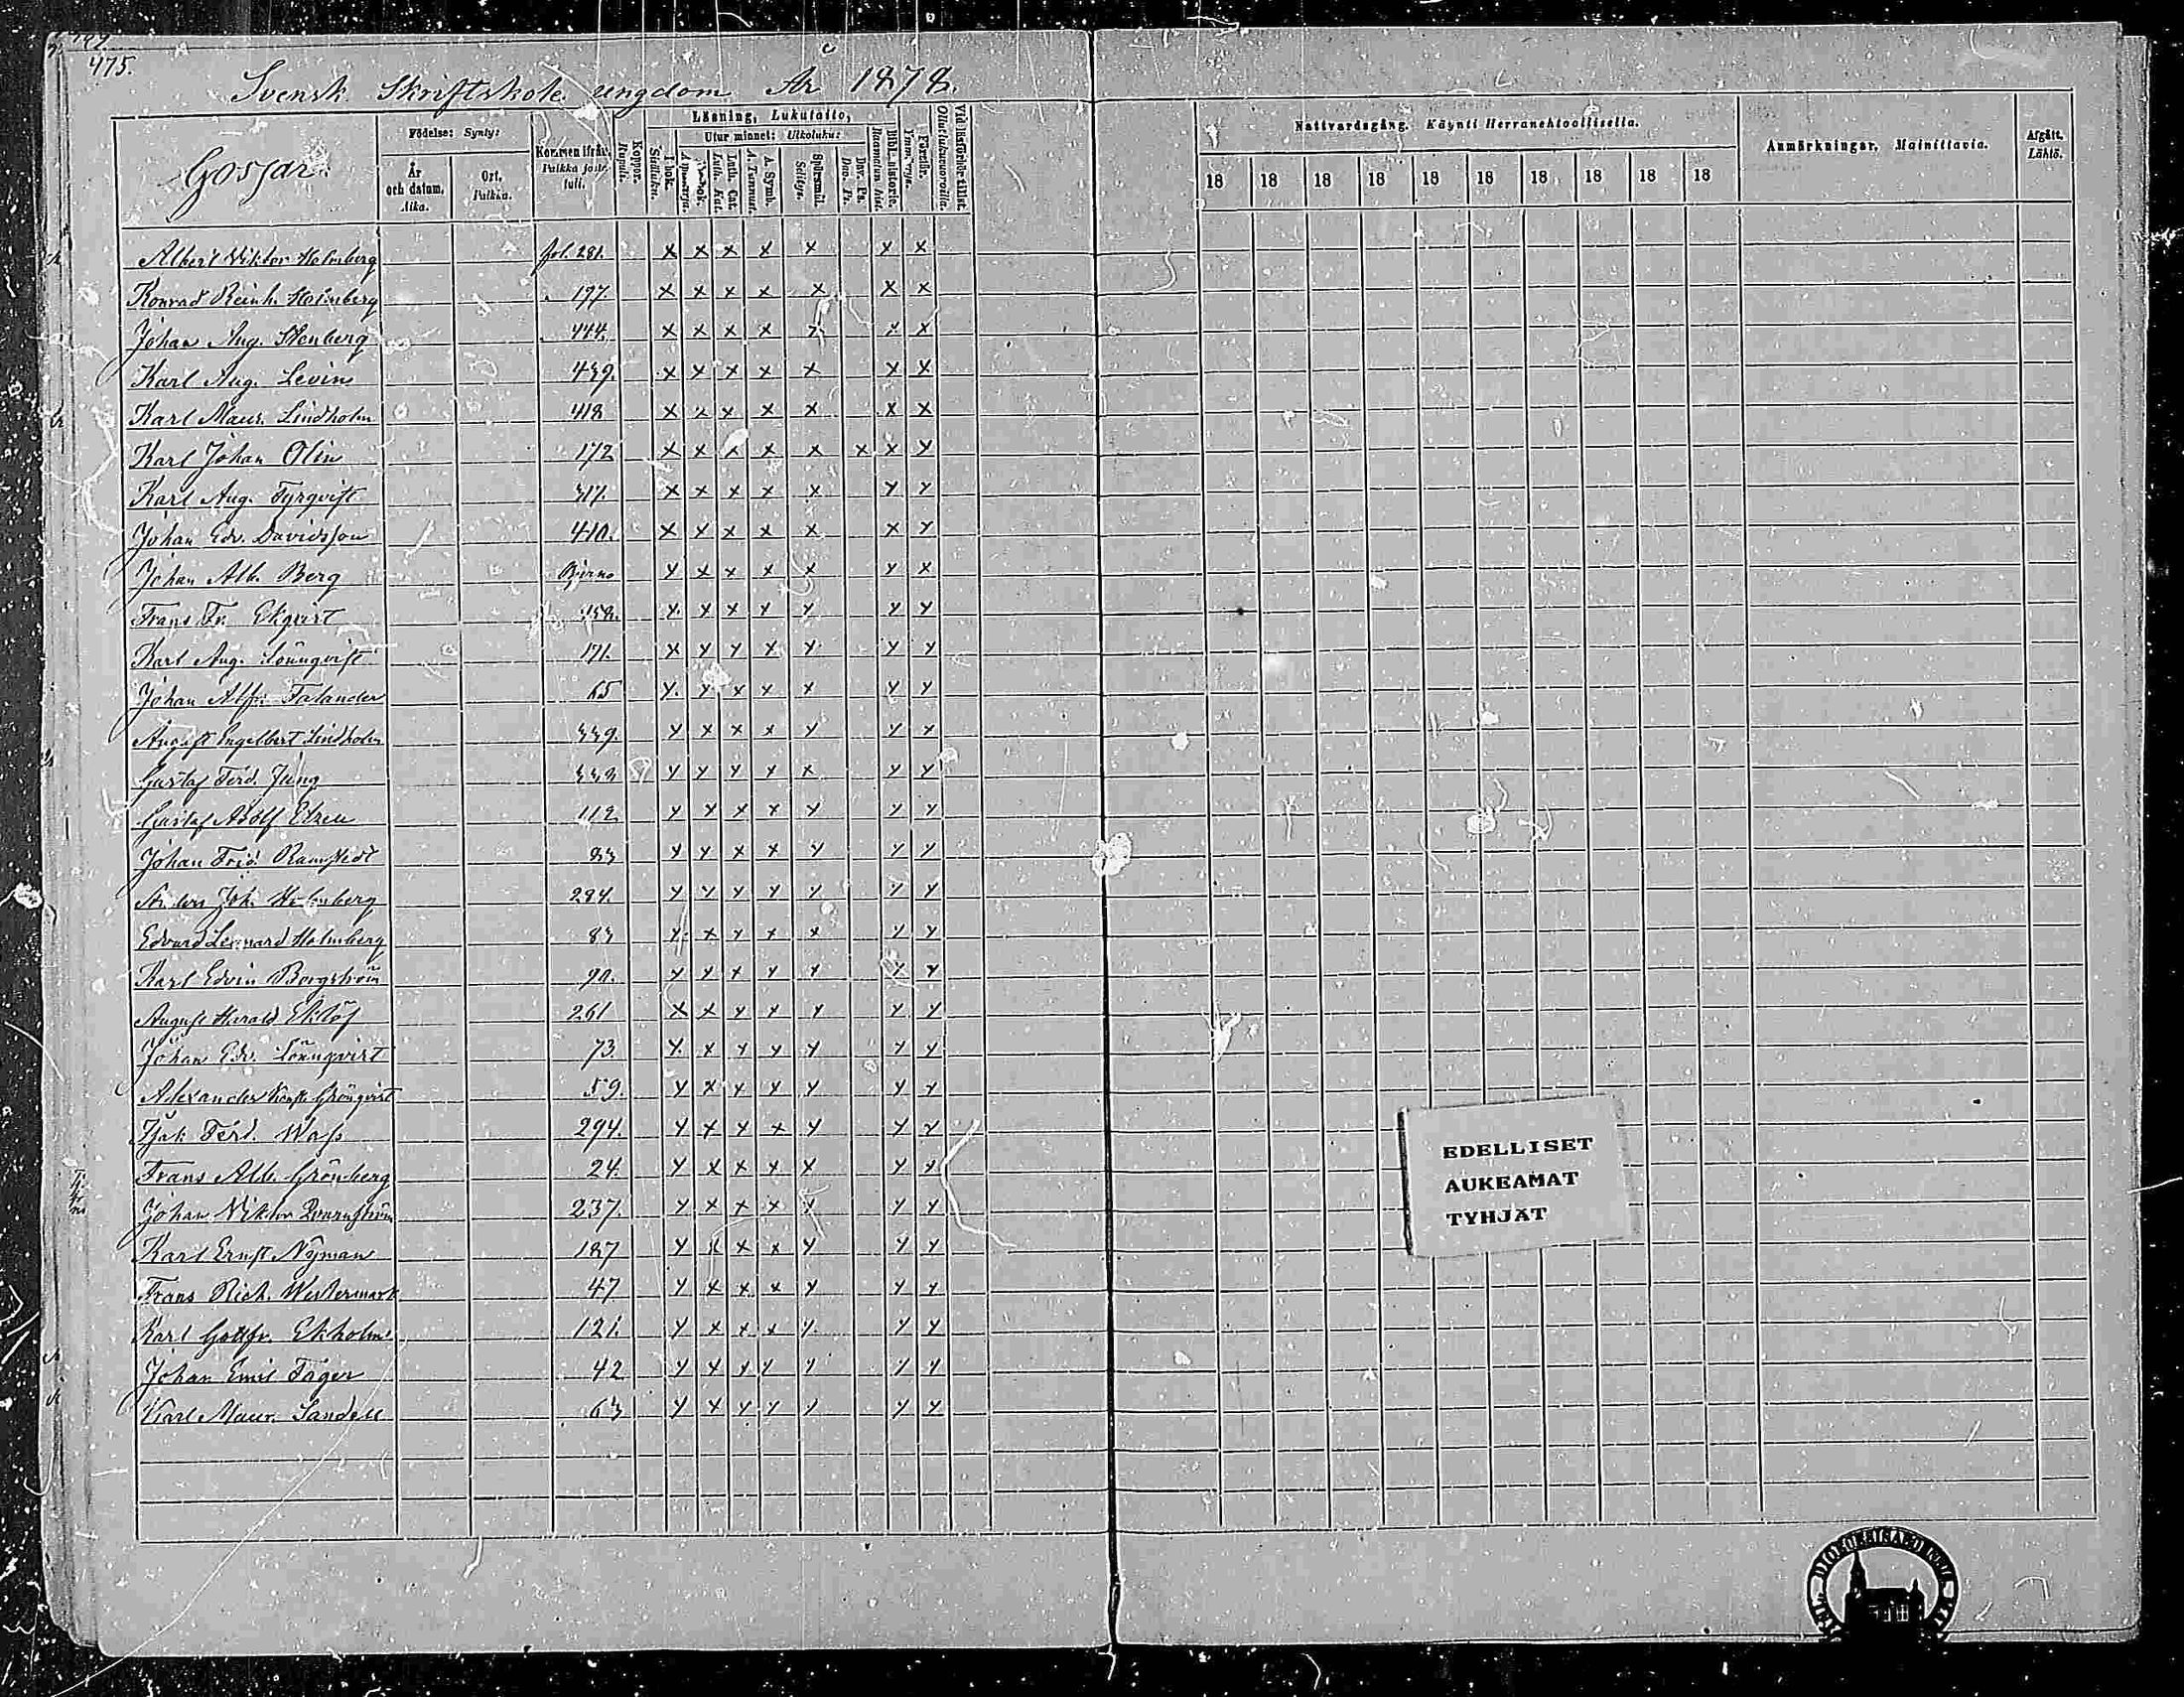 475.
Svensk Skriftskole ungdom År 1878.
Gossar.
Födelse: Synty:
År och datum. Aika.
Ort. Paikka.
Kommen ifrån.
Koppor. Rupuli.
Läsning, Lukutaito,
Utur minnet: Ulkoluku:
I bok. Sisältä.
Luth. Cat. Luth. Kat.
A. Symb. A. Tunnust.
Spörsmål. Selitys.
Dav. Ps. Dav. Ps.
Bibl. historie. Raamatun hist.
Förstår. Ymmärrys.
Nattvardsgång. Käynti Herranehtoollisella.
18 18 18 18 18 18 18 18 18 18
Anmärkningar. Mainittavia.
Afgått. Lähtö.
Albert Viktor Holmberg fol. 281. x x x x x x x
Konrad Reinh. Holmberg 197. x x x x x x x
Johan Aug. Stenberg 444. x x x x x x x
Karl Aug. Levin 439. x x x x x x x
Karl Maur. Lindholm 418 x x x x x x x
Karl Johan Olin 172 x x x x x x x x
Karl Aug. Tyrqvist 317. x x x x x x x
Johan Edv. Davidsson 410. x x x x x x x
Johan Alb. Berg Bjerno x x x x x x x
Frans Fr. Ekqvist 158. x x x x x x x
Karl Aug. Lönnqvist 171. x x x x x x x
Johan Alfr. Talander 65 x x x x x x x
August Engelbert Lindholm 339. x x x x x x x
Gustaf Ferd. Jung 338 x x x x x x x
Gustaf Adolf Elzen 112 x x x x x x x
Johan Frid. Ramstedt 83 x x x x x x x
Anders Joh. Holmberg 284. x x x x x x x
Edvard Leonard Holmberg 83 x x x x x x x
Karl Edvin Borgström 90. x x x x x x x
August Harald Eklöf 261 x x x x x x x
Johan Edv. Lönnqvist 73. x x x x x x x
Alexander Grönqvist 59. x x x x x x x
Isak Ferd. Wass 294. x x x x x x x
Frans Alb. Grönberg 24. x x x x x x x
Johan Viktor Qvarnström 237. x x x x x x x
Karl Ernst Nyman 187 x x x x x x x
Frans Rich. Westermark 47 x x x x x x x
Karl Gottfr. Ekholm 121. x x x x x x x
Johan Emil Fager 42 x x x x x x x
Karl Maur. Sandell 63 x x x x x x x
EDELLISET
AUKEAMAT
TYHJÄT